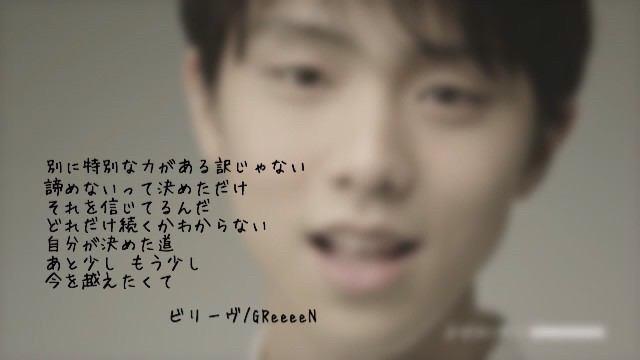 別に特別な力がある訳じゃない
諦めないって決めただけ
それを信じてるんだ
どれだけ続くかわからない
自分が決めた道
あと少し もう少し
今を越えたくて
ビリーヴ/GReeeeN